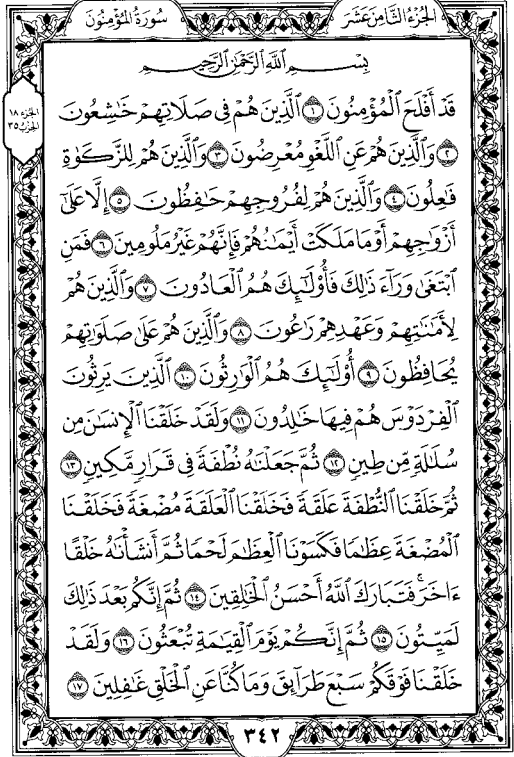 الجزء الثامن عشر
سورة المؤمنون
بِسْمِ ٱللَّهِ ٱلرَّحْمَٰنِ ٱلرَّحِيمِ
الجزء ١٨
الحزب ٣٥
قَدْ أَفْلَحَ ٱلْمُؤْمِنُونَ ١ ٱلَّذِينَ هُمْ فِى صَلَاتِهِمْ خَٰشِعُونَ
٢ وَٱلَّذِينَ هُمْ عَنِ ٱللَّغْوِ مُعْرِضُونَ ٣ وَٱلَّذِينَ هُمْ لِلزَّكَوٰةِ
فَٰعِلُونَ ٤ وَٱلَّذِينَ هُمْ لِفُرُوجِهِمْ حَٰفِظُونَ ٥ إِلَّا عَلَىٰٓ
أَزْوَٰجِهِمْ أَوْ مَا مَلَكَتْ أَيْمَٰنُهُمْ فَإِنَّهُمْ غَيْرُ مَلُومِينَ ٦ فَمَنِ
ٱبْتَغَىٰ وَرَآءَ ذَٰلِكَ فَأُو۟لَٰٓئِكَ هُمُ ٱلْعَادُونَ ٧ وَٱلَّذِينَ هُمْ
لِأَمَٰنَٰتِهِمْ وَعَهْدِهِمْ رَٰعُونَ ٨ وَٱلَّذِينَ هُمْ عَلَىٰ صَلَوَٰتِهِمْ
يُحَافِظُونَ ٩ أُو۟لَٰٓئِكَ هُمُ ٱلْوَٰرِثُونَ ١٠ ٱلَّذِينَ يَرِثُونَ
ٱلْفِرْدَوْسَ هُمْ فِيهَا خَٰلِدُونَ ١١ وَلَقَدْ خَلَقْنَا ٱلْإِنسَٰنَ مِن
سُلَٰلَةٍ مِّن طِينٍ ١٢ ثُمَّ جَعَلْنَٰهُ نُطْفَةً فِى قَرَارٍ مَّكِينٍ ١٣
ثُمَّ خَلَقْنَا ٱلنُّطْفَةَ عَلَقَةً فَخَلَقْنَا ٱلْعَلَقَةَ مُضْغَةً فَخَلَقْنَا
ٱلْمُضْغَةَ عِظَٰمًا فَكَسَوْنَا ٱلْعِظَٰمَ لَحْمًا ثُمَّ أَنشَأْنَٰهُ خَلْقًا
ءَاخَرَ ۚ فَتَبَارَكَ ٱللَّهُ أَحْسَنُ ٱلْخَٰلِقِينَ ١٤ ثُمَّ إِنَّكُم بَعْدَ ذَٰلِكَ
لَمَيِّتُونَ ١٥ ثُمَّ إِنَّكُمْ يَوْمَ ٱلْقِيَٰمَةِ تُبْعَثُونَ ١٦ وَلَقَدْ
خَلَقْنَا فَوْقَكُمْ سَبْعَ طَرَآئِقَ وَمَا كُنَّا عَنِ ٱلْخَلْقِ غَٰفِلِينَ ١٧
٣٤٢